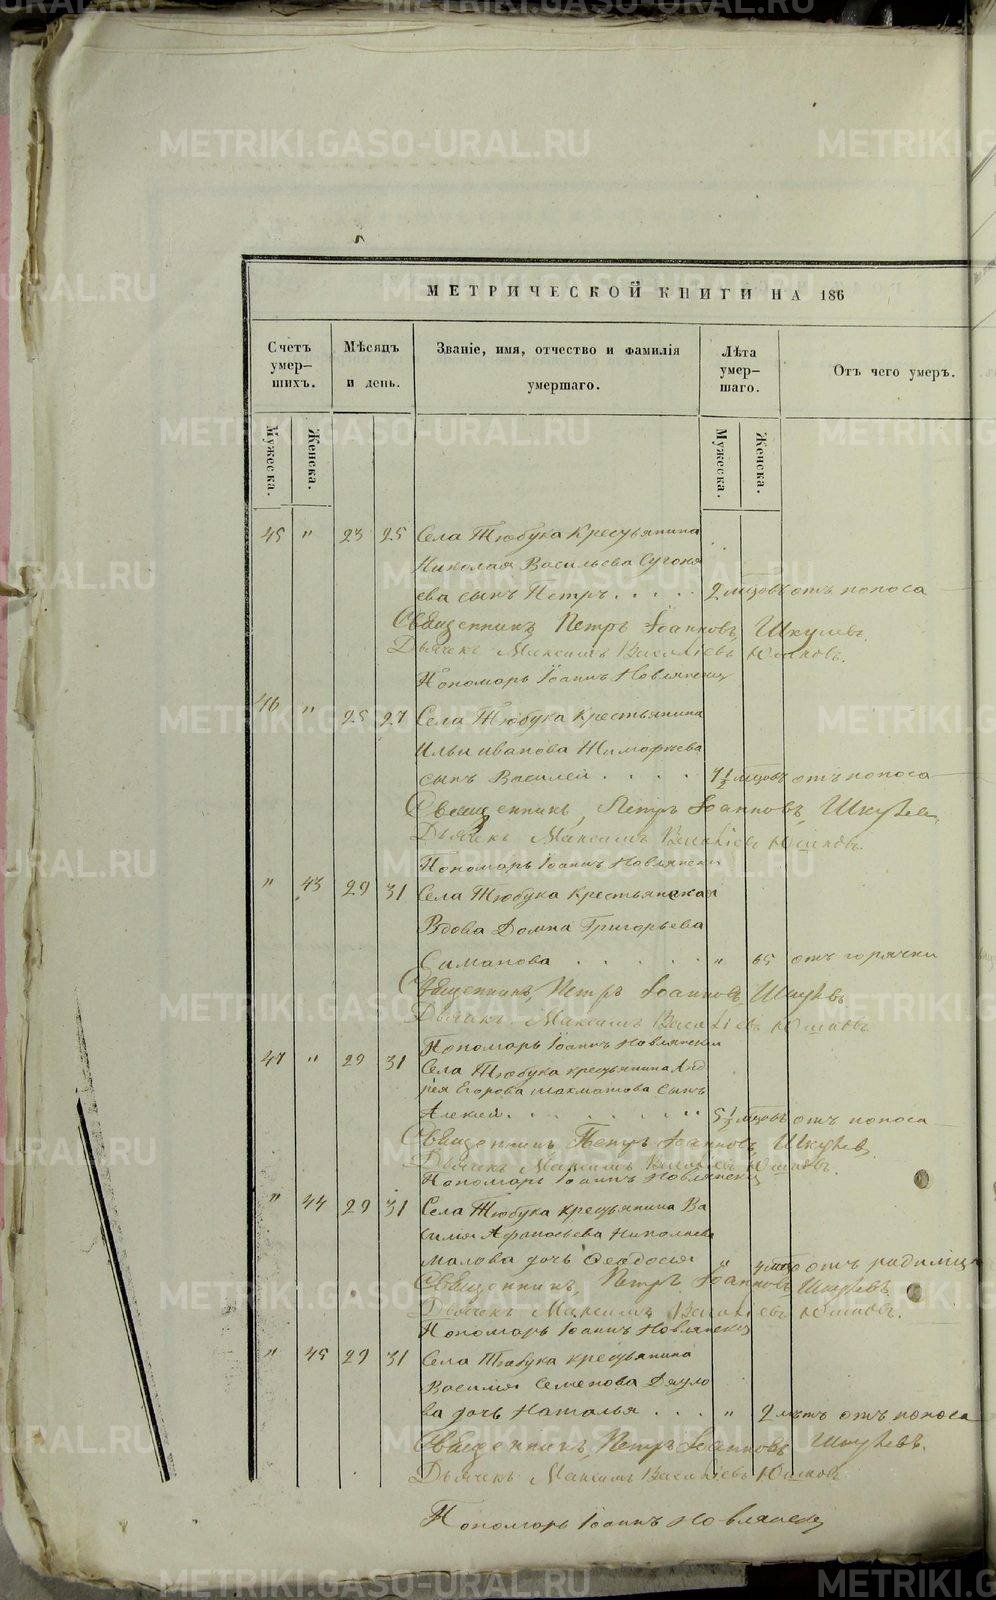 МЕТРИЧЕСКОЙ КНИГИ НА 186
Счетъ умер-шихъ.
Мѣсяцъ и день.
Званіе, имя, отчество и фамилія умершаго.
Лѣта умер-шаго.
Отъ чего умеръ.
Мужеска.
Женска.
Мужеска.
Женска.
45 " 23 25 Села Тюбука Крестьянина
Николая Васильева Сугоня
ева сынъ Петръ . . . . 2 мцовъ отъ поноса
Священникъ Петръ Іоанновъ Шкулевъ.
Дьячекъ Максимъ Василіевъ Юшковъ.
Пономарь Іоаннъ Новлянскій
46 " 25 27 Села Тюбука Крестьянина
Ильи Иванова Тиморкева
сынъ Василей . . . . 1/2 мцовъ отъ поноса
Священникъ, Петръ Іоанновъ, Шкулев
Дьячекъ Максимъ Василіевъ Юшковъ.
Пономарь Іоаннъ Новлянскій
" 43 29 31 Села Тюбука Крестьянская
Вдова Домна Григорьева
Симанова . . . . . . " 65 отъ горячки
Священникъ, Петръ Іоанновъ, Шкулевъ
Дьячекъ Максимъ Василіевъ Юшковъ
Пономарь Іоаннъ Новлянскій
47 " 29 31 Села Тюбука крестьянина Анд
рея Егорова Шахматова сынъ
Алексей . . . . . . . 5 1/2 мцовъ отъ поноса
Священникъ Петръ Іоанновъ Шкулев.
Дьячекъ Максимъ Василіевъ Юшковъ.
Пономарь Іоаннъ Новлянскій
" 44 29 31 Села Тюбука крестьянина Ва
силия Афонасьева Николаева
малова дочь Феодосья " отъ родимца
Священникъ, Петръ Іоанновъ Шкулевъ
Дьячекъ Максимъ Василіевъ Юшковъ.
Пономарь Іоаннъ Новлянскій
" 45 29 31 Села Тюбука крестьянина
Василия Семенова Дауло
ва дочь Наталья . . . " 2 лѣтъ отъ поноса
Священникъ, Петръ Іоанновъ Шкулевъ.
Дьячекъ Максимъ Василіевъ Юшковъ
Пономарь Іоаннъ Новлянскій
METRIKI.GASO-URAL.RU